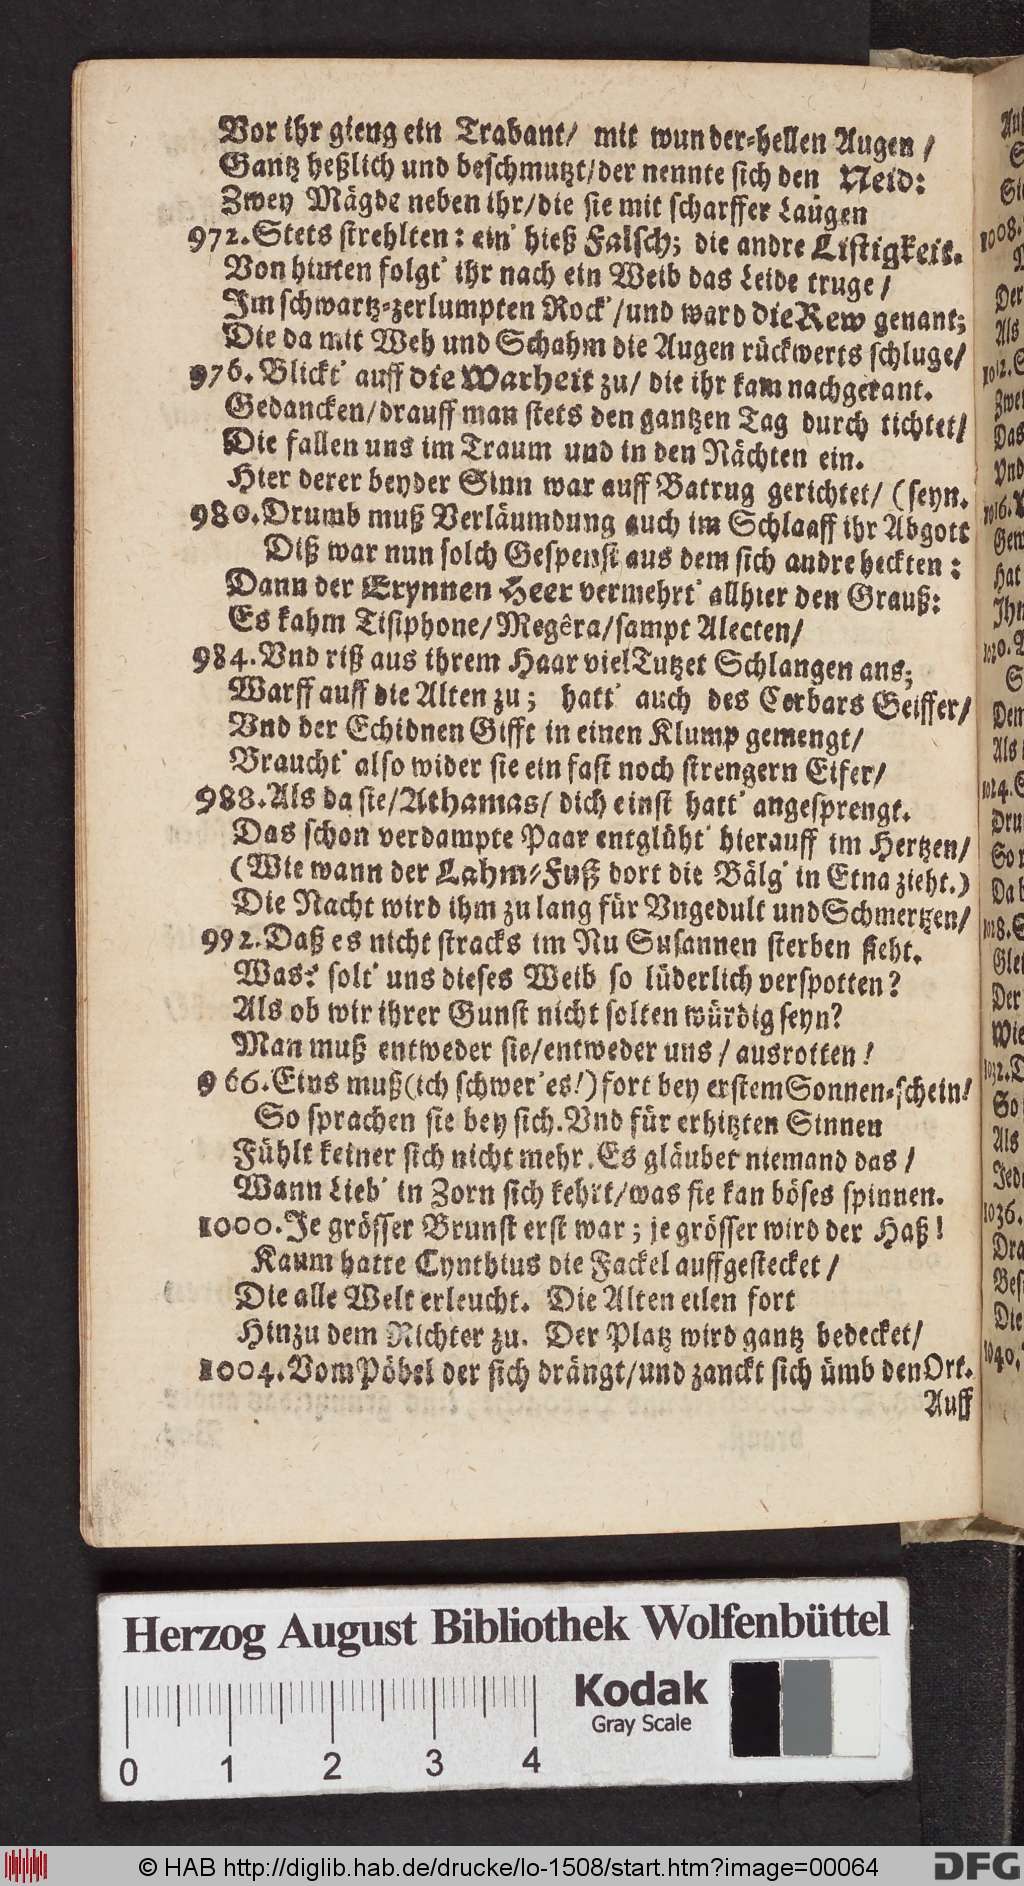 Vor ihr gieng ein Trabant/ mit wunder-hellen Augen /
Gantz heßlich und beschmutzt/der nennte sich den Neid:
Zwey Mägde neben ihr/die sie mit scharffer Laugen
972. Stets strehlten: ein' hieß Falsch; die andre Listigkeit.
Von hinten folgt' ihr nach ein Weib das Leide truge /
Im schwartz-zerlumpten Rock'/und ward die Rew genant;
Die da mit Weh und Schahm die Augen rückwerts schluge/
976. Blickt' auff die Warheit zu/ die ihr kam nachgerant.
Gedancken/drauff man stets den gantzen Tag durch tichtet/
Die fallen uns im Traum und in den Nächten ein.
Hier derer beyder Sinn war auff Batrug gerichtet/ (seyn.
980. Drumb muß Verläumdung auch im Schlaaff ihr Abgott
Diß war nun solch Gespenst aus dem sich andre heckten:
Dann der Erynnen Heer vermehrt' allhier den Grauß:
Es kahm Tisiphone/Megêra/sampt Alecten/
984. Vnd riß aus ihrem Haar viel Tutzet Schlangen ans;
Warff auff die Alten zu; hatt' auch des Cerbars Geiffer/
Vnd der Echidnen Gifft in einen Klump gemengt/
Braucht' also wider sie ein fast noch strengern Eifer/
988. Als da sie/Athamas/ dich einst hatt' angesprengt.
Das schon verdampte Paar entglüht' hierauff im Hertzen/
(Wie wann der Lahm-Fuß dort die Bälg' in Etna zieht.)
Die Nacht wird ihm zu lang für Vngedult und Schmertzen/
992. Daß es nicht stracks im Nu Susannen sterben sieht.
Was? solt' uns dieses Weib so lüderlich verspotten?
Als ob wir ihrer Gunst nicht solten würdig seyn?
Man muß entweder sie/entweder uns / ausrotten!
966. Eins muß (ich schwer'es!) fort bey erstem Sonnen-schein!
So sprachen sie bey sich. Vnd für erhitzten Sinnen
Fühlt keiner sich nicht mehr. Es gläubet niemand das /
Wann Lieb' in Zorn sich kehrt/was sie kan böses spinnen.
1000. Je grösser Brunst erst war; je grösser wird der Haß!
Kaum hatte Cynthius die Fackel auffgestecket /
Die alle Welt erleucht. Die Alten eilen fort
Hinzu dem Richter zu. Der Platz wird gantz bedecket/
1004. Vom Pöbel der sich drängt/und zanckt sich ümb den Ort.
Auff
1008.
Der
Als
1012.
Das
Vnd
1016.
Hat
Als
1024.
Der
Wie
1032.
So
Als
1036.
Die
1040.
Herzog August Bibliothek Wolfenbüttel
Kodak
Gray Scale
0 1 2 3 4
© HAB http://diglib.hab.de/drucke/lo-1508/start.htm?image=00064
DFG